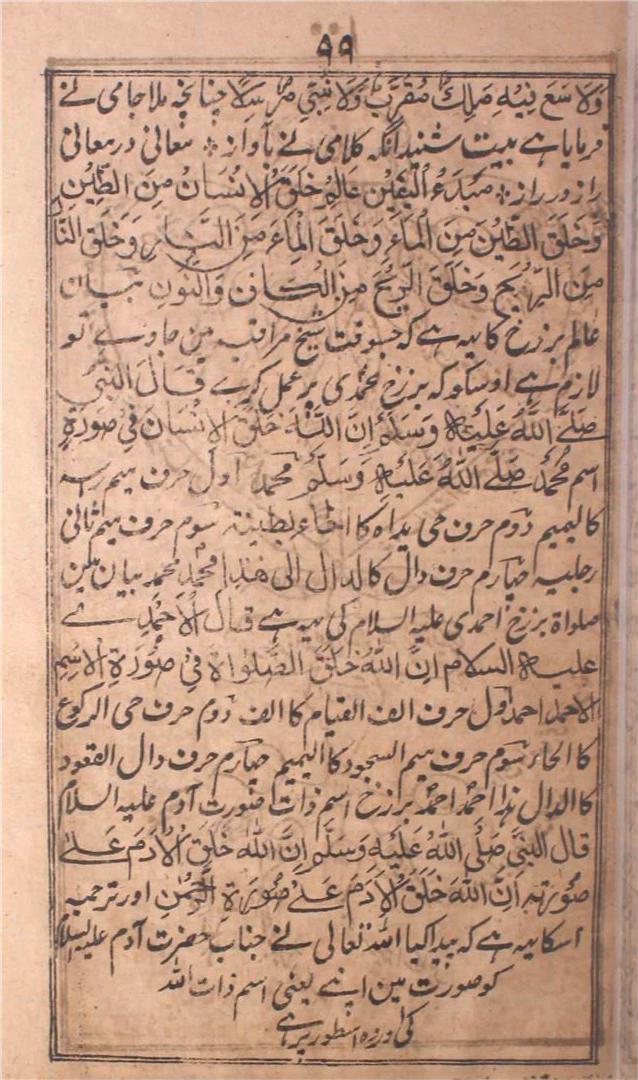 ۹۹
وَلا سَعَ فِیْهِ مَلِكٌ مُقَرَّبٌ وَلَا نَبِّیٌ مُرْسَلًا چنانچہ ملا جامی نے
فرمایا ہے بیت شنید آنگہ کلامی نے بآواز ؞ معانی در معانی
راز در راز ؞ مَبْدَءُ الْیَقِیْن عَالِمُ خَلَقَ الْاِنْسَانُ مِنَ الطِّیْنِ
وَخَلَقَ الطِّیْنَ مِنَ الْمَاءِ وَخَلَقَ الْمَاءَ مِنَ النَّارِ وَخَلَقَ النَّا
مِنَ الرِّیْحِ وَخَلَقَ الرِّیْحَ مِنَ الْکَافِ وَالنُّونِ بیان
عالم برزخ کا یہہ ہے کہ جسوقت شیخ مراقبہ مین جاوے تو
لازم ہے اوسکو کہ برزخ محمدی پر عمل کرے قَالَ النَّبِیُّ
صَلَّے اللّٰهُ عَلَیْهِ وَسَلَّمَ اِنَّ اللّٰهَ خَلَقَ الْاِنْسَانَ فِیْ صُوْرَةِ
اسم مُحَمَّدٍ صَلَّے اللّٰهُ عَلَیْهِ وَسَلَّمْ محمد اول حرف میم راسہ
کالمیم دوم حرف حی یداہ کا الحاء بطینہ سوم حرف میم ثانی
رجلیہ چہارم حرف دال کالدال الی ھٰذا مُحَمَّدْ محمد بیان مین
صلواۃ برزخ احمدی علیہ السلام کی یہہ ہے قال الْاَحْمَدِے
علیہ السلام اِنَّ اللّٰهُ خَلَقَ الصَّلٰواۃَ فِیْ صُوْرَةِ الْاِسْمِ
الاحمد احمد اول حرف الف القیام کا الف دوم حرف حی الرکوع
کا الحاء سوم حرف میم السجود کا المیم چہارم حرف دال القعود
کا الدال ہٰذا احمد احمد برزخ اسم ذات صورت آدم علیہ السلام
قال النَّبِیْ صَلَّے اللّٰهُ عَلَیْهِ وَسَلَّمْ اِنَّ اللّٰهَ خَلَقَ الْاٰدَمَ عَلےٰ
صُوْرَتِہٖ اِنَّ اللّٰهَ خَلَقَ الْاٰدَمَ عَلےٰ صُوْرَةِ الرَّحْمٰنِ اور ترجمہ
اسکا یہہ ہے کہ پیدا کیا اللہ تعالی نے جناب حضرت آدم علیہ السلام
کو صورت مین اپنے یعنی اسم ذات اللہ
کی پر ہے